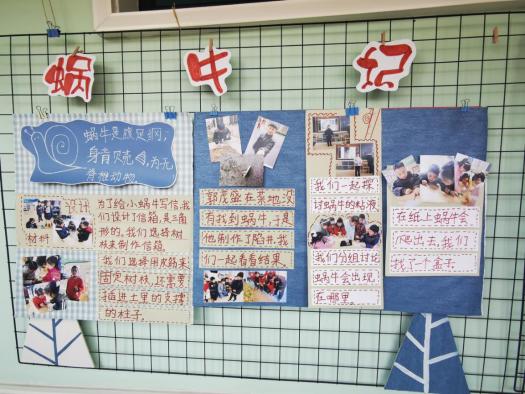 蜗
牛
记
蜗牛是腹足纲,
身背贝壳,为无
脊椎动物。
设计
材料
为了给小蜗牛写信,我
们设计了信箱,是三角
形的。我们选择树
枝来制作信箱。
我们选择用皮筋来
固定树枝,还需要
插进土里的支撑
的柱子。
郭茂盛在菜地没
有找到蜗牛,于是
他制作了陷井,我
们一起看看结果
我们一起探
讨蜗牛的粘液
我们分组讨论
蜗牛会出现
在哪里。
在纸上蜗牛会
爬出去,我们
找了一个盒子。